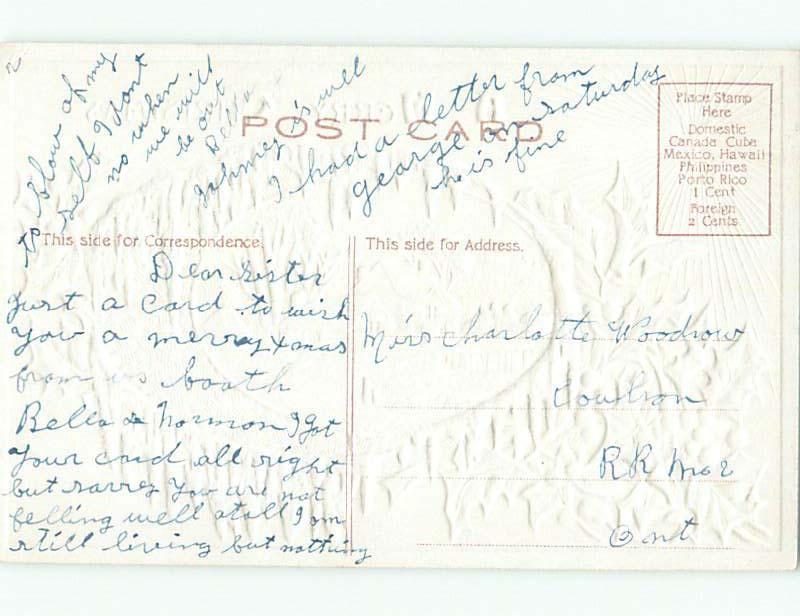 to blow of my
self I dont
no when
we will
be out
Bella
Johnney is well
I had a letter from
george on saturday
he is fine
POST CARD
Place Stamp
Here
Domestic
Canada Cuba
Mexico, Hawaii
Philippines
Porto Rico
1 Cent
Foreign
2 Cents
This side for Correspondence.
Dear sister
Just a card to wish
you a merrey xmas
from us booth
Bella & Norman I got
your card all right
but sarrey you are not
felling well atall I am
still living but nothing
This side for Address.
Miss Charlotte Woodrow
Coulson
RR No 2
Ont